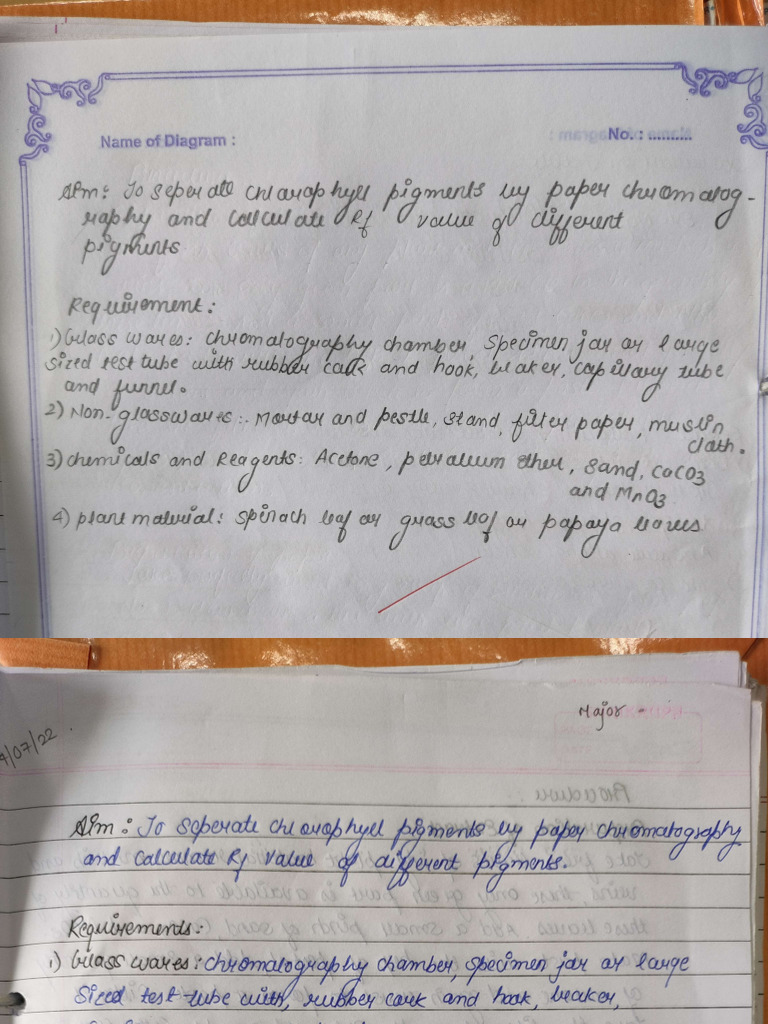 Name of Diagram :
No. : ..........
Aim: To seperate chlorophyll pigments by paper chromatog-
raphy and calculate Rf value of different
pigments
Requirement:
1) Glass wares: chromatography chamber, specimen jar or large
sized test tube with rubber cork and hook, beaker, capillary tube
and funnel.
2) Non-glasswares:- Mortar and pestle, stand, filter paper, muslin
cloth.
3) chemicals and Reagents: Acetone, petroleum ether, sand, CaCO3
and MnO3
4) plant material: spinach leaf or grass leaf or papaya leaves
Major -
/07/22
Aim: To seperate chlorophyll pigments by paper chromatography
and calculate Rf value of different pigments.
Requirements:
1) Glass wares: chromatography chamber, specimen jar or large
sized test-tube with, rubber cork and hook, beaker,